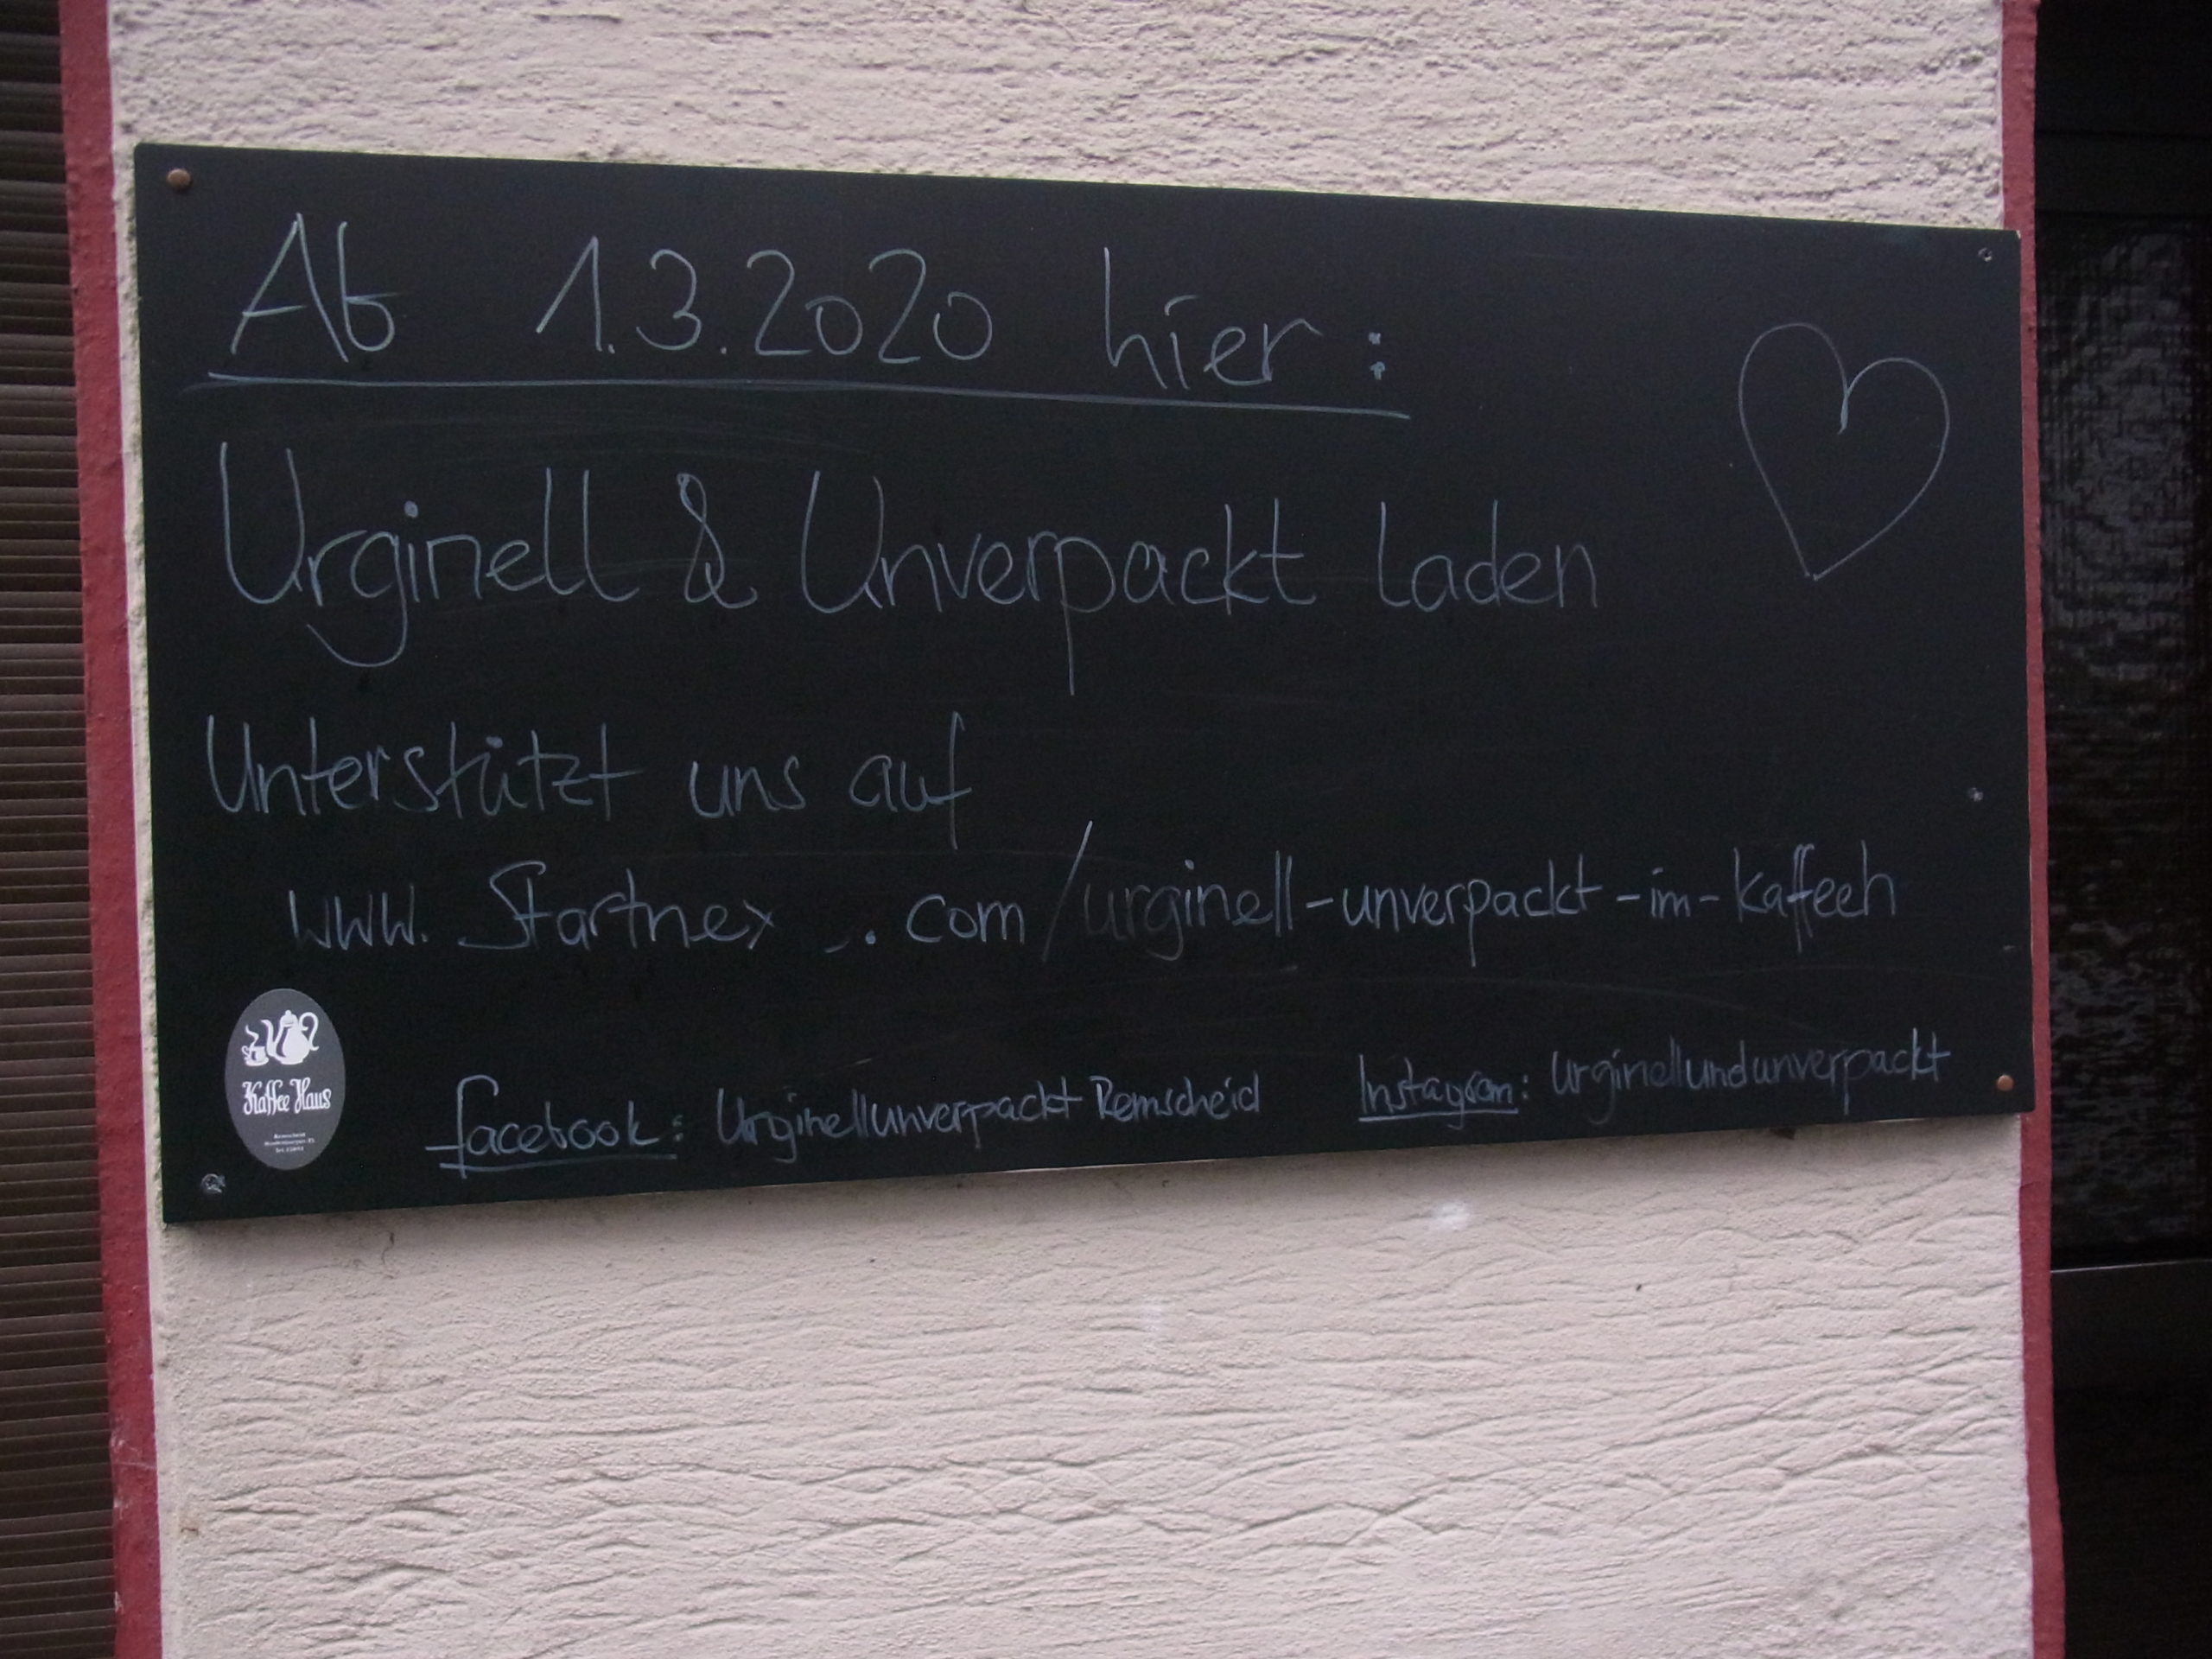 Ab 1.3.2020 hier:
Urginell & Unverpackt Laden
Unterstützt uns auf
www. Startnex . com/urginell-unverpackt-im-kaffeeh
Kaffee Haus
facebook: Urginellunverpackt Remscheid
Instagram: urginellundunverpackt